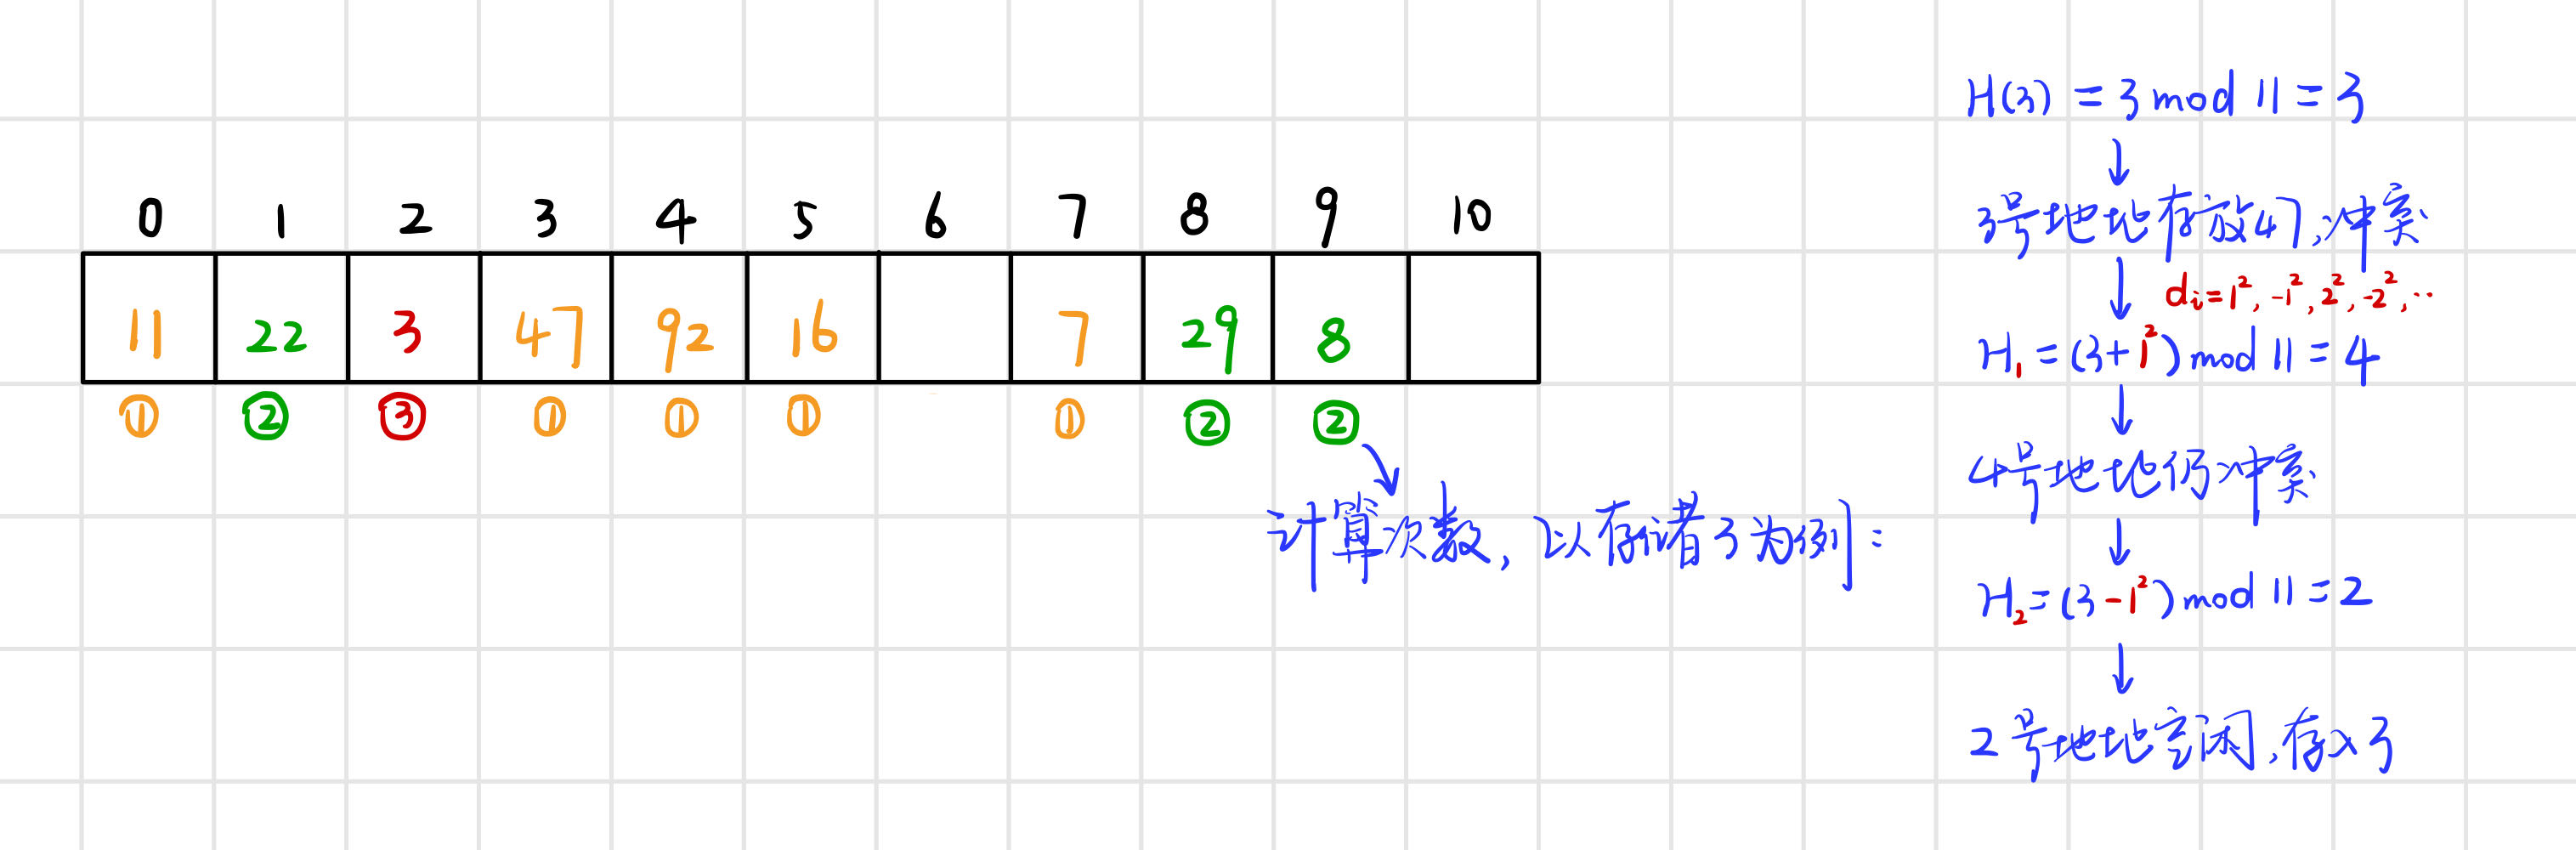 0 1 2 3 4 5 6 7 8 9 10
11 22 3 47 92 16 7 29 8
① ② ③ ① ① ① ① ② ②
计算次数, 以存储3为例:
H(3) = 3 mod 11 = 3
↓
3号地址存放47,冲突
↓ dᵢ=1²,-1²,2²,-2²,··
H₁ = (3+1²) mod 11 = 4
↓
4号地址仍冲突
↓
H₂=(3-1²) mod 11 = 2
↓
2号地址空闲,存入3